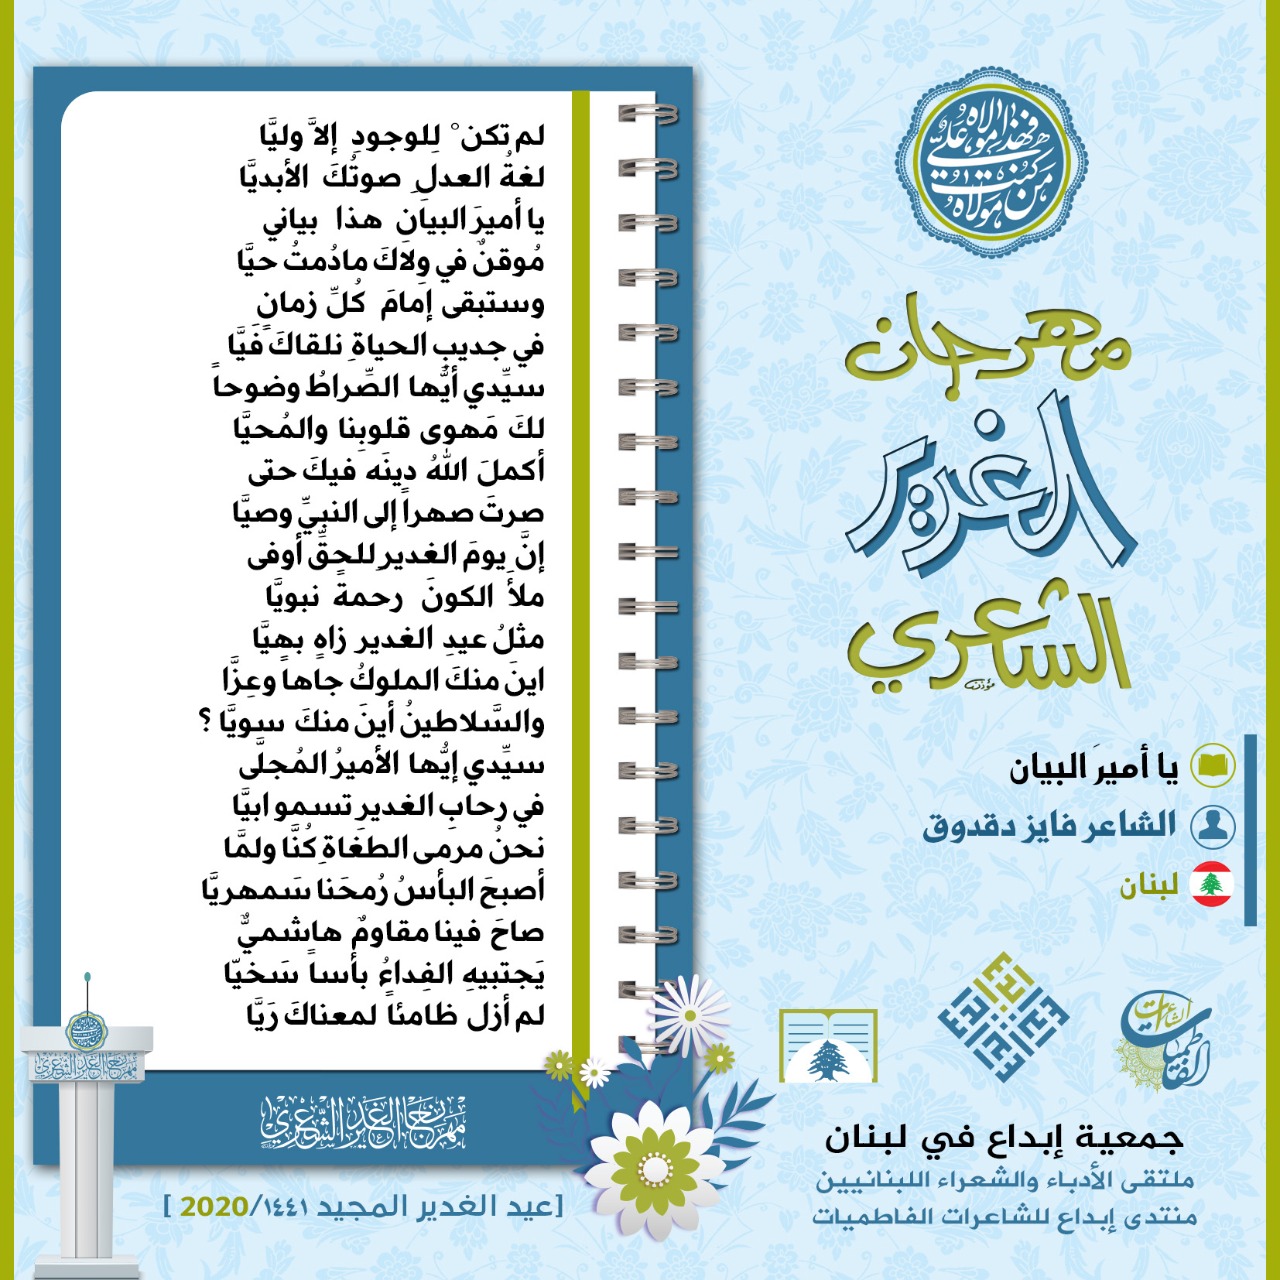 من كنت مولاه فهذا مولاه علي
مهرجان
الغدير
الشاعري
يا أميرَ البيان
الشاعر فايز دقدوق
لبنان
لم تكنْ لِلوجودِ إلاَّ وليَّا
لغةُ العدلِ صوتُكَ الأبديَّا
يا أميرَ البيانِ هذا بياني
مُوقنٌ في وِلاَكَ مادُمتُ حيَّا
وستبقى إمامَ كُلِّ زمانٍ
في جديبِ الحياةِ نلقاكَ فَيَّا
سيِّدي أيُّها الصِّراطُ وضوحاً
لكَ مَهوى قلوبِنا والمُحيَّا
أكملَ اللهُ دينَه فيكَ حتى
صرتَ صهراً إلى النبيِّ وصيَّا
إنَّ يومَ الغديرِ للحقِّ أوفى
ملأَ الكونَ رحمةً نبويَّا
مثلُ عيدِ الغدير زاهٍ بهيَّا
اينَ منكَ الملوكُ جاهاً وعِزَّا
والسَّلاطينُ أينَ منكَ سويَّا ؟
سيِّدي إيُّها الأميرُ المُجلَّى
في رحابِ الغديرِ تسمو ابيَّا
نحنُ مرمى الطغَاةِ كُنَّا ولمَّا
أصبحَ البأسُ رُمحَنا سَمهريَّا
صاحَ فينا مقاومٌ هاشميٌّ
يَجتبيهِ الفِداءُ بأساً سَخيّا
لم أزل ظَامئاً لمعناكَ رَيَّا
مهرجان الغدير الشعري
[عيد الغدير المجيد ١٤٤١/2020 ]
إبداع إبداع إبداع إبداع
الشاعرات
الفاطميات
جمعية إبداع في لبنان
ملتقى الأدباء والشعراء اللبنانيين
منتدى إبداع للشاعرات الفاطميات